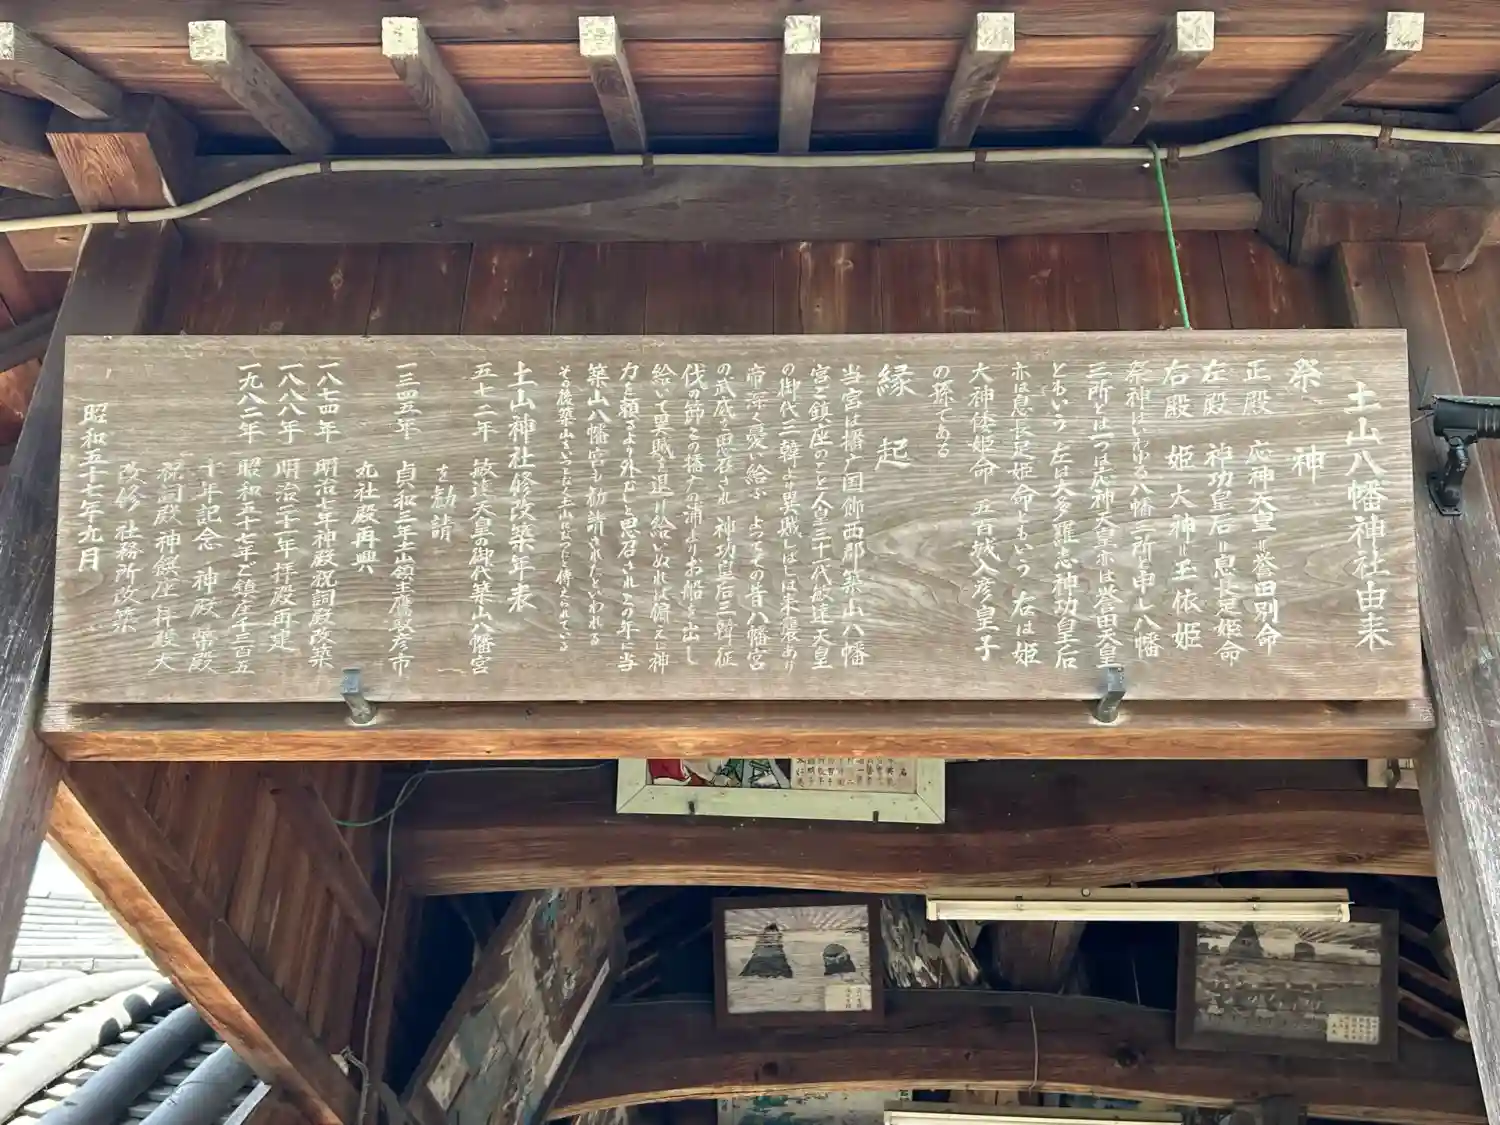 土山八幡神社由来
祭神
正殿 応神天皇＝誉田別命
左殿 神功皇后＝息長足姫命
右殿 姫大神＝玉依姫
祭神はいわゆる八幡三所と申し八幡
三所とは一つは応神天皇亦は誉田天皇
ともいう 左は大多羅志神功皇后
亦は息長足姫命ともいう 右は姫
大神体姫命 五百城入彦皇子
の孫である
縁起
当宮は播广国飾西郡築山八幡
宮と鎮座のこと人皇三十一代敏達天皇
の御代三韓より異賊しばしば来襲あり
帝深く憂い給ふ よってその昔八幡宮
の武威を思召され 神功皇后三韓征
伐の節この播广の浦よりお船を出し
給いて異賊を退け給いぬれば偏えに神
力を頼るより外なしと思召されこの年に当
築山八幡宮を勧請されたといわれる
その後築山をいつとなく土山になったと傳えられている
土山神社修改築年表
五七二年 敏達天皇の御代築山八幡宮
を勧請
一三四五年 貞和三年土山領主鷹取彦市
九社殿再興
一八七四年 明治七年神殿祝詞殿改築
一八八八年 明治二十一年拝殿再建
一九八二年 昭和五十七年ご鎮座千三百五
十年記念 神殿 幣殿
祝詞殿神饌座 拝殿大
改修 社務所改築
昭和五十七年九月